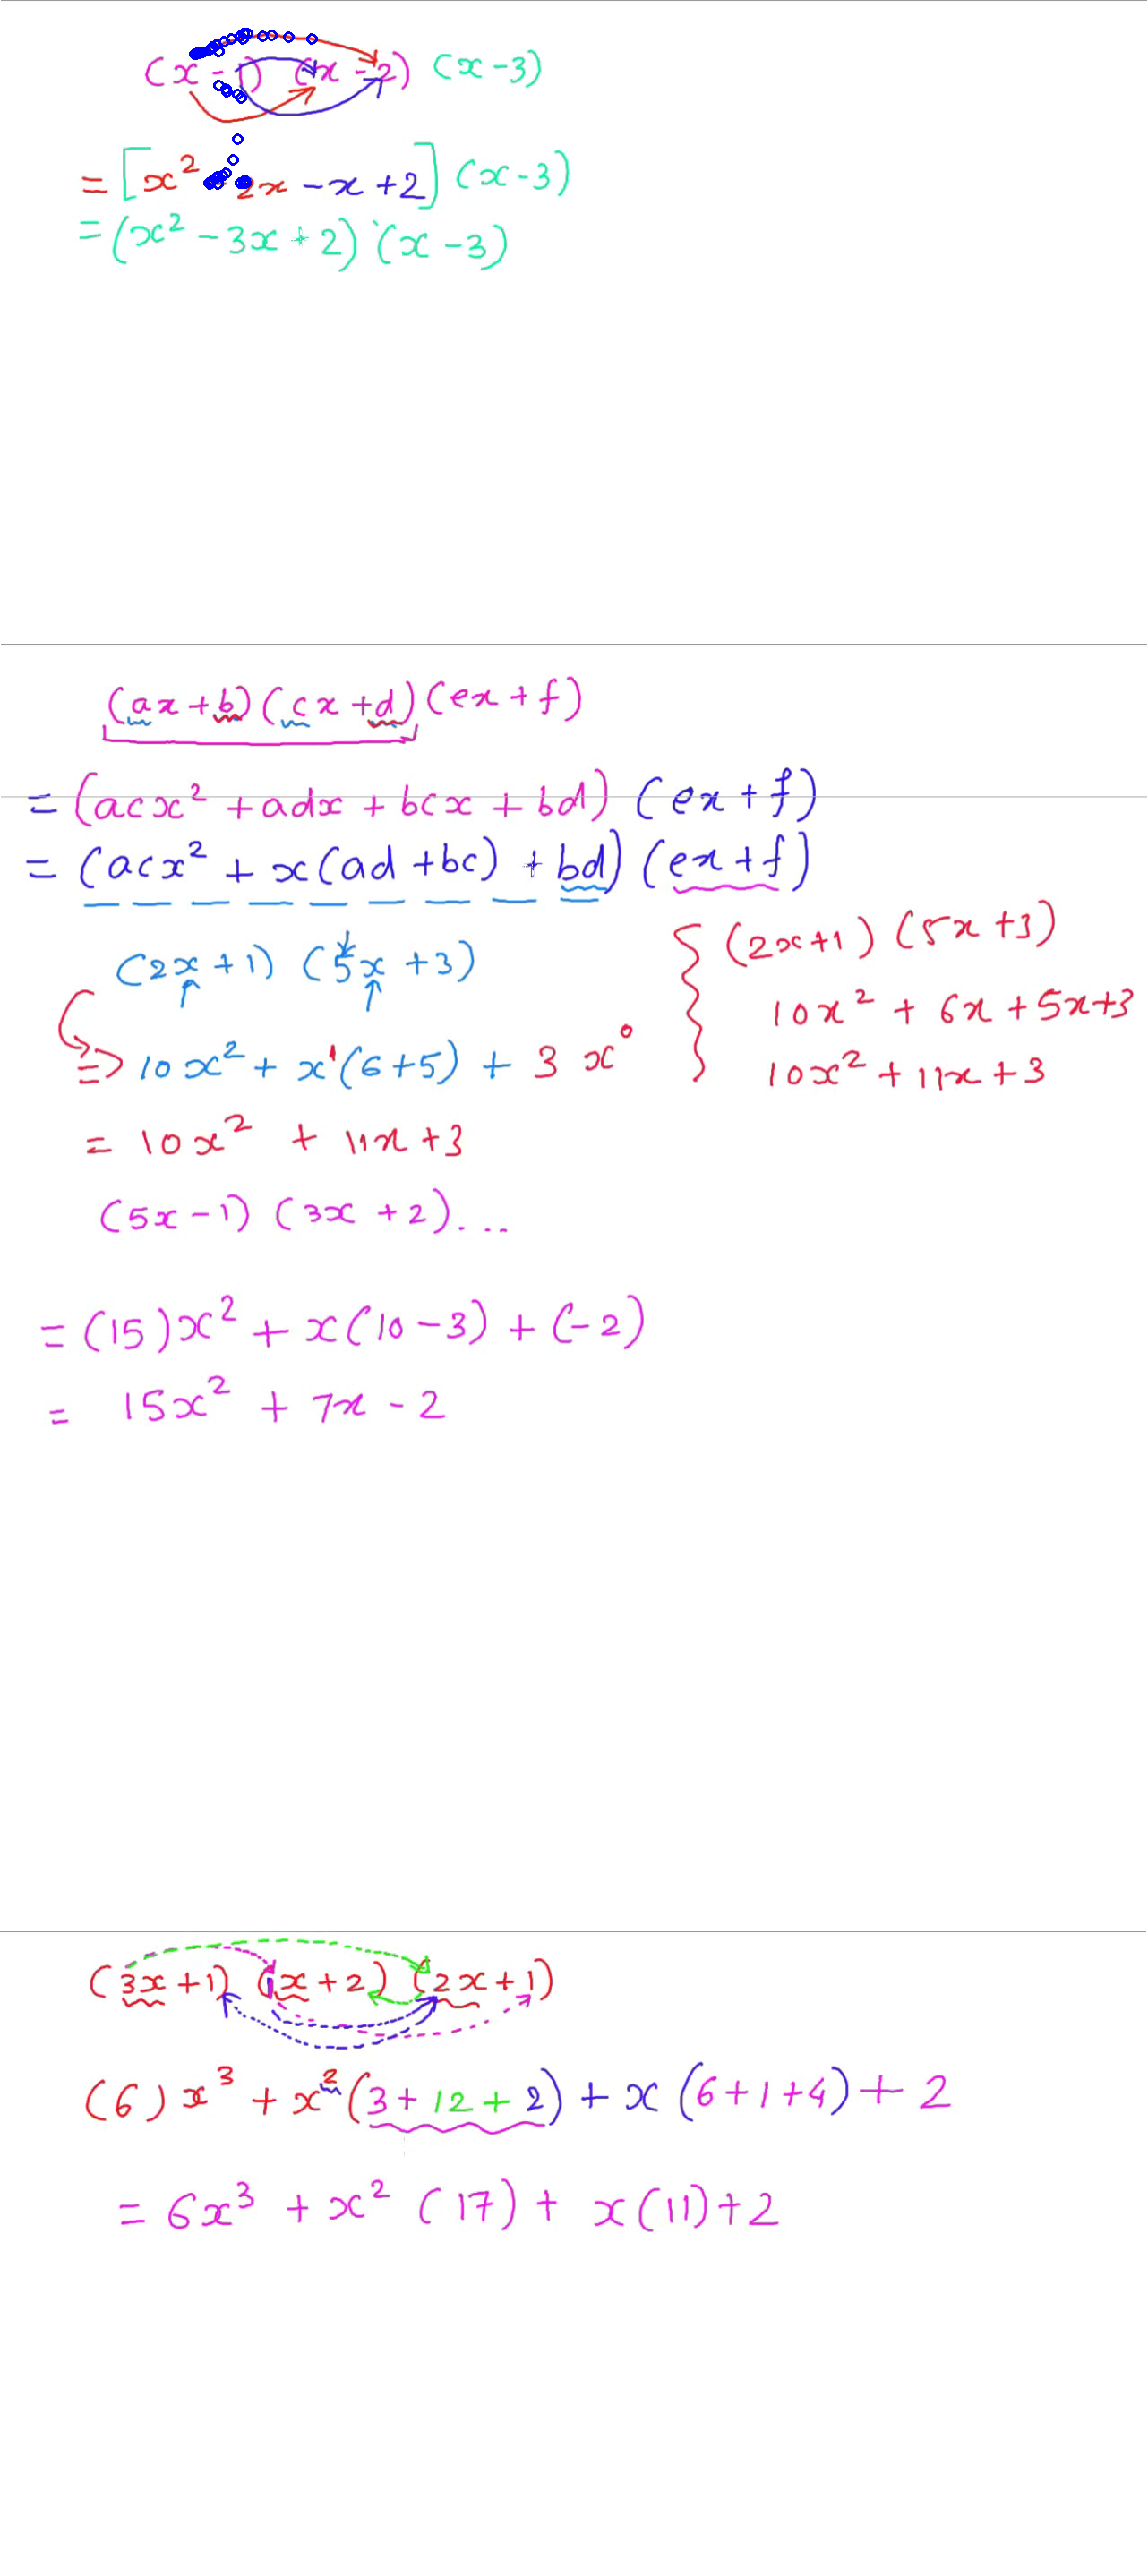 (x - 1) (x - 2) (x - 3)
= [x² - 2x - x + 2] (x - 3)
= (x² - 3x + 2) (x - 3)
(ax + b) (cx + d) (ex + f)
= (acx² + adx + bcx + bd) (ex + f)
= (acx² + x(ad + bc) + bd) (ex + f)
(2x + 1) (5x + 3)
=> 10x² + x¹(6 + 5) + 3 x⁰
= 10x² + 11x + 3
{ (2x + 1) (5x + 3)
10x² + 6x + 5x + 3
10x² + 11x + 3
(5x - 1) (3x + 2) ...
= (15)x² + x(10 - 3) + (-2)
= 15x² + 7x - 2
(3x + 1) (x + 2) (2x + 1)
(6) x³ + x² (3 + 12 + 2) + x (6 + 1 + 4) + 2
= 6x³ + x² (17) + x (11) + 2